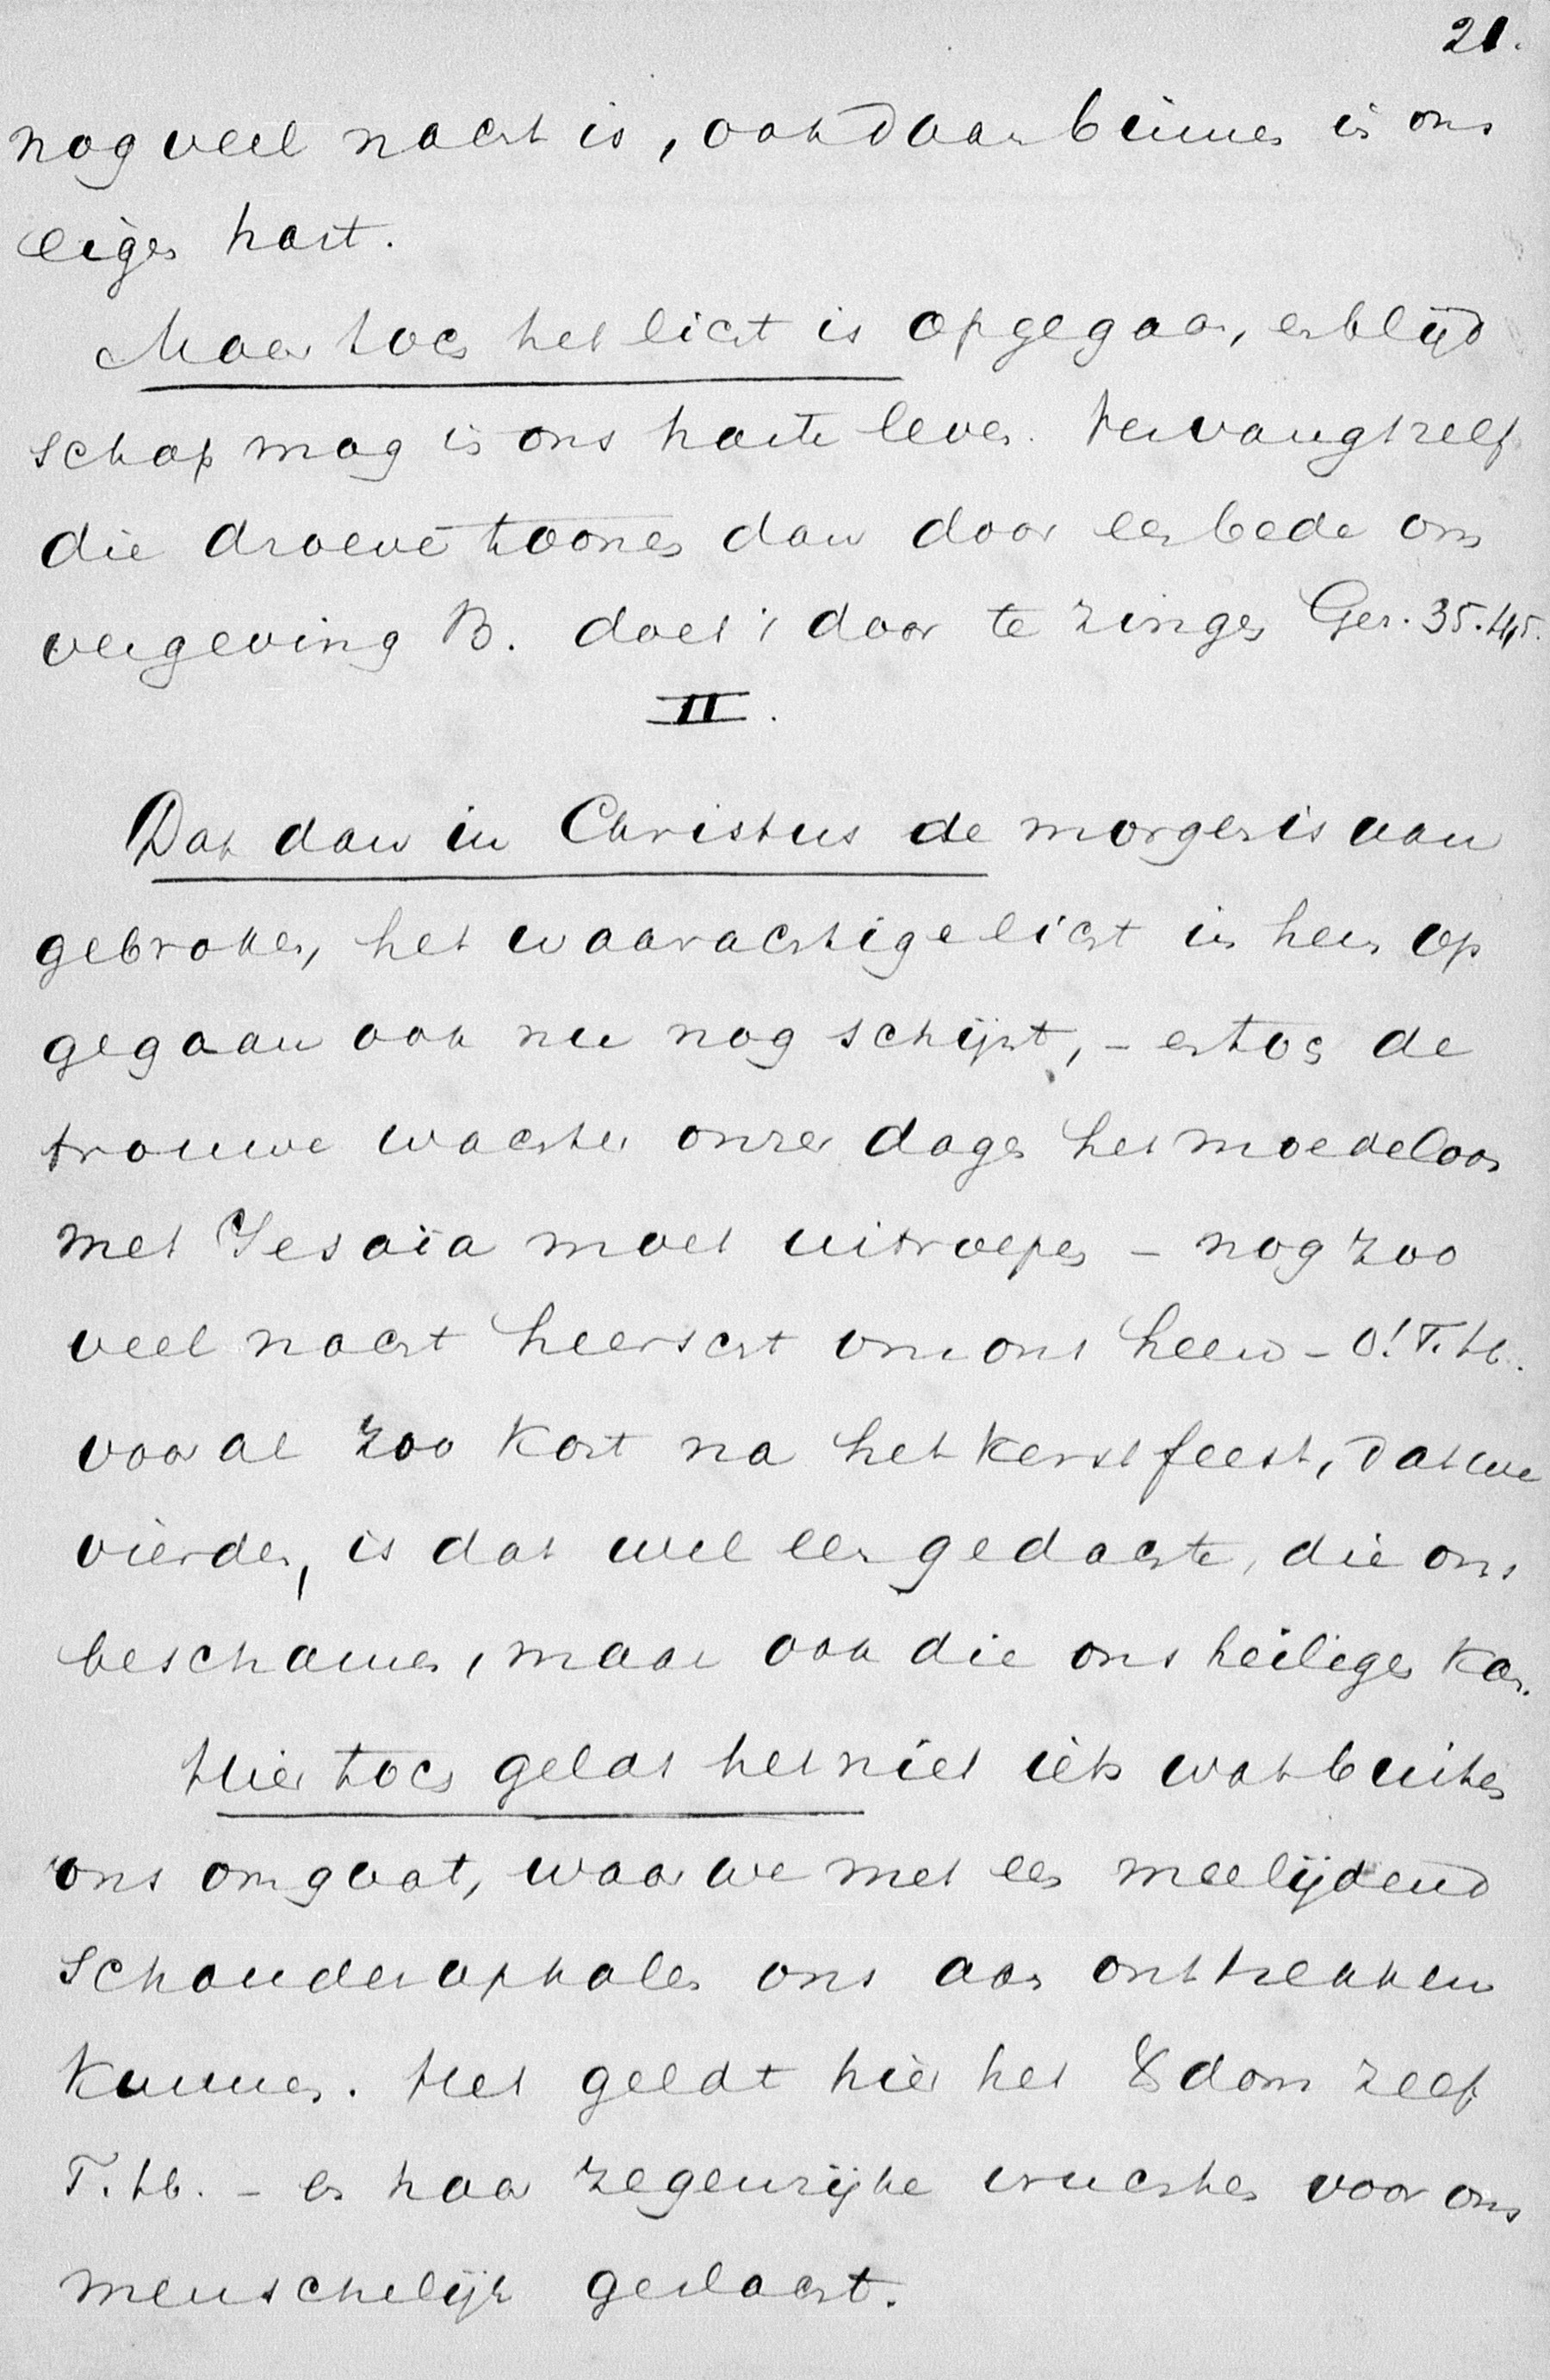 21.
nog veel nacht is, ook daar binnen in ons
eigen hart.
Maar toch het licht is opgegaan, en blijd
schap mag in ons harte leven. Vervangt zelf
die droeve toonen dan door een bede om
vergeving B. doet 't door te zingen Gez. 35.4,5.
II.
Dat dan in Christus de morgen is aan
gebroken, het waarachtige licht in hem op
gegaan ook nu nog schijnt, - en toch de
trouwe wachter onzer dagen het moedeloos
met Jesaïa moet uitroepen - nog zoo
veel nacht heerscht om ons heen - O! T.H.
vooral zoo kort na het kerstfeest, dat we
vierden, is dat wel een gedachte, die ons
beschamen, maar ook die ons heiligen kan.
Hier toch geldt het niet iets wat buiten
ons omgaat, waar we met een meelijdend
schouderophalen ons aan onttrekken
kunnen. Het geldt hier het Xdom zelf
T.H. - en haar zegenrijke vruchten voor ons
menschelijk geslacht.